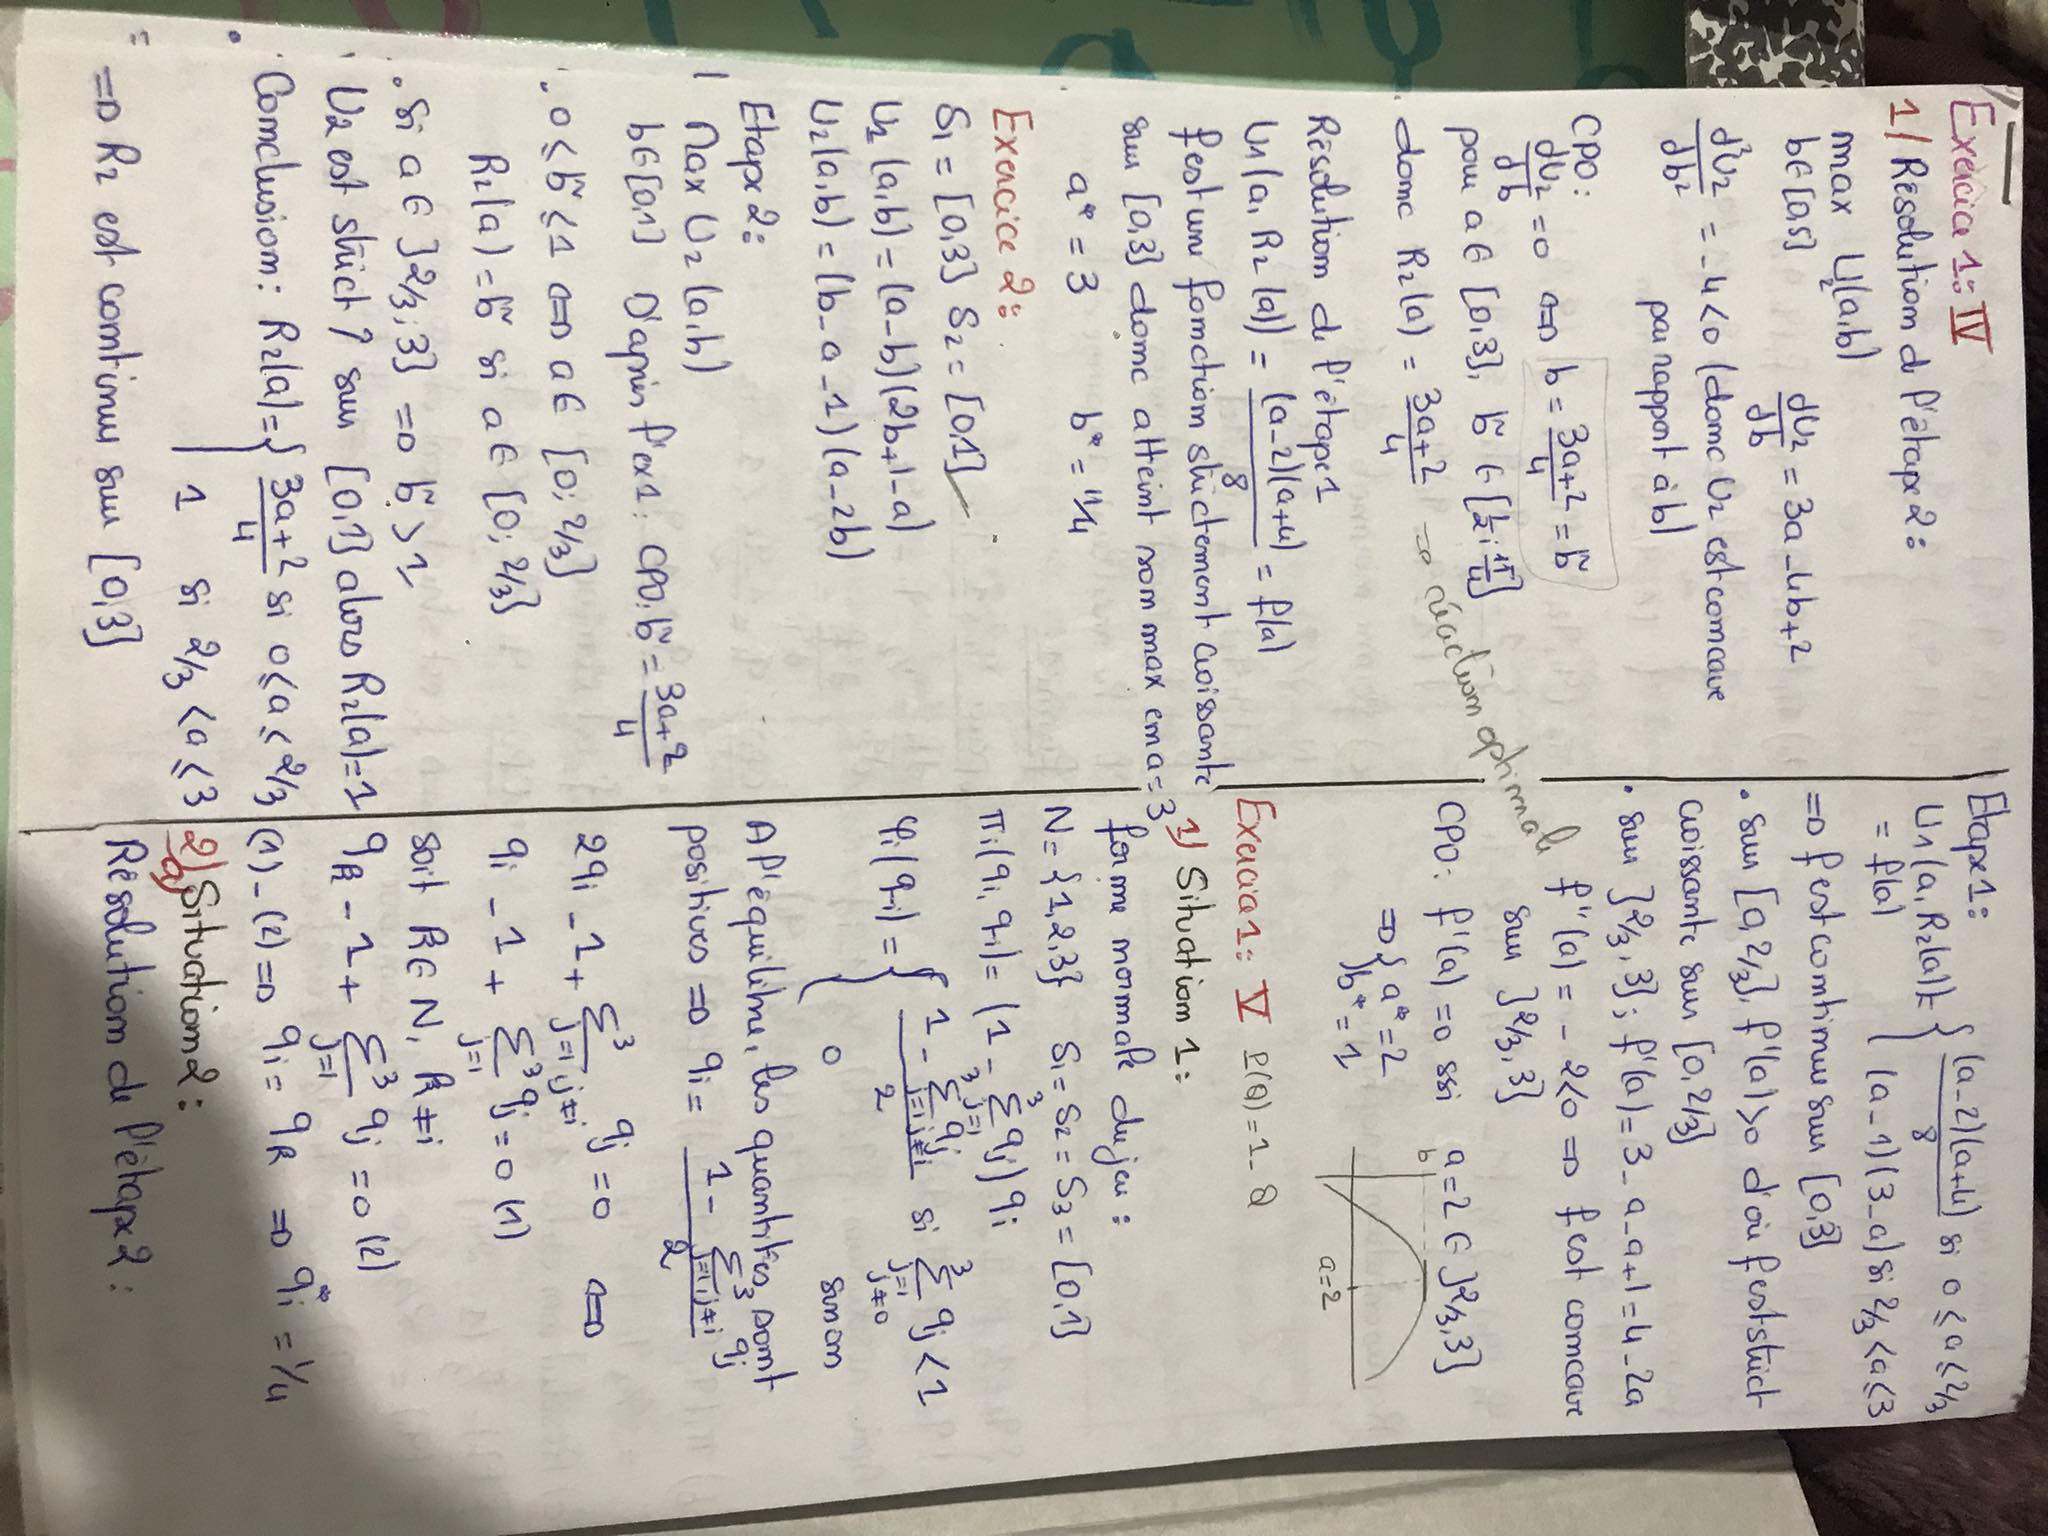 Exercice 1: IV
1/ Résolution de l'étape 2:
max U₂(a,b)
b∈[0,5]
dU₂/db = 3a-4b+2
d²U₂/db² = -4<0 (donc U₂ est concave
par rapport à b)
CPO:
dU₂/db = 0 ⇔ b = (3a+2)/4 = b̃
pour a∈ [0,3], b̃ ∈ [1/2; 11/4]
donc R₂(a) = (3a+2)/4 ⇒ réaction optimale
Résolution de l'étape 1
U₁(a, R₂(a)) = (a-2)(a+4)/8 = f(a)
f est une fonction strictement croissante
sur [0,3] donc atteint son max en a=3
a* = 3 b* = 11/4
Exercice 2:
S₁ = [0,3] S₂ = [0,1]
U₁(a,b) = (a-b)(2b+1-a)
U₂(a,b) = (b-a-1)(a-2b)
Etape 2:
Max U₂(a,b)
b∈[0,1] D'après l'ex1: CPO: b̃ = (3a+2)/4
• 0≤b̃≤1 ⇔ a∈ [0; 2/3]
R₂(a) = b̃ si a∈ [0; 2/3]
• si a∈ ]2/3; 3] ⇒ b̃ > 1,
U₂ est strict ↗ sur [0,1] alors R₂(a)=1
• Conclusion: R₂(a) = { (3a+2)/4 si 0≤a≤2/3
1 si 2/3<a≤3
⇒ R₂ est continue sur [0,3]
Etape 1:
U₁(a, R₂(a)) = { (a-2)(a+4)/8 si 0≤a≤2/3
= f(a) (a-1)(3-a) si 2/3<a≤3
⇒ f est continue sur [0,3]
• sur [0, 2/3], f'(a)>0 d'où f est strict
croissante sur [0, 2/3]
• sur ]2/3, 3]; f'(a) = 3-a-a+1 = 4-2a
f''(a) = -2<0 ⇒ f est concave
sur ]2/3, 3]
CPO: f'(a)=0 ssi a=2 ∈ ]2/3, 3]
⇒ { a* = 2
b* = 1
b
a=2
Exercice 1: V P(Q) = 1-Q
1) Situation 1:
forme normale du jeu:
N={1,2,3} S₁=S₂=S₃=[0,1]
πᵢ(qᵢ,q₋ᵢ) = (1 - Σ³ⱼ₌₁ qⱼ) qᵢ
φᵢ(q₋ᵢ) = { (1 - Σ³ⱼ₌₁,ⱼ≠ᵢ qⱼ)/2 si Σ³ⱼ₌₁ ⱼ≠₀ qⱼ <1
0 sinon
A l'équilibre, les quantités sont
positives ⇒ qᵢ = (1 - Σ³ⱼ₌₁,ⱼ≠ᵢ qⱼ)/2
2qᵢ - 1 + Σ³ⱼ₌₁,ⱼ≠ᵢ qⱼ = 0 ⇔
qᵢ - 1 + Σ³ⱼ₌₁ qⱼ = 0 (1)
soit k∈N, k≠i
qₖ - 1 + Σ³ⱼ₌₁ qⱼ = 0 (2)
(1)-(2) ⇒ qᵢ = qₖ ⇒ qᵢ* = 1/4
2) Situation 2:
a)
Résolution de l'étape 2: